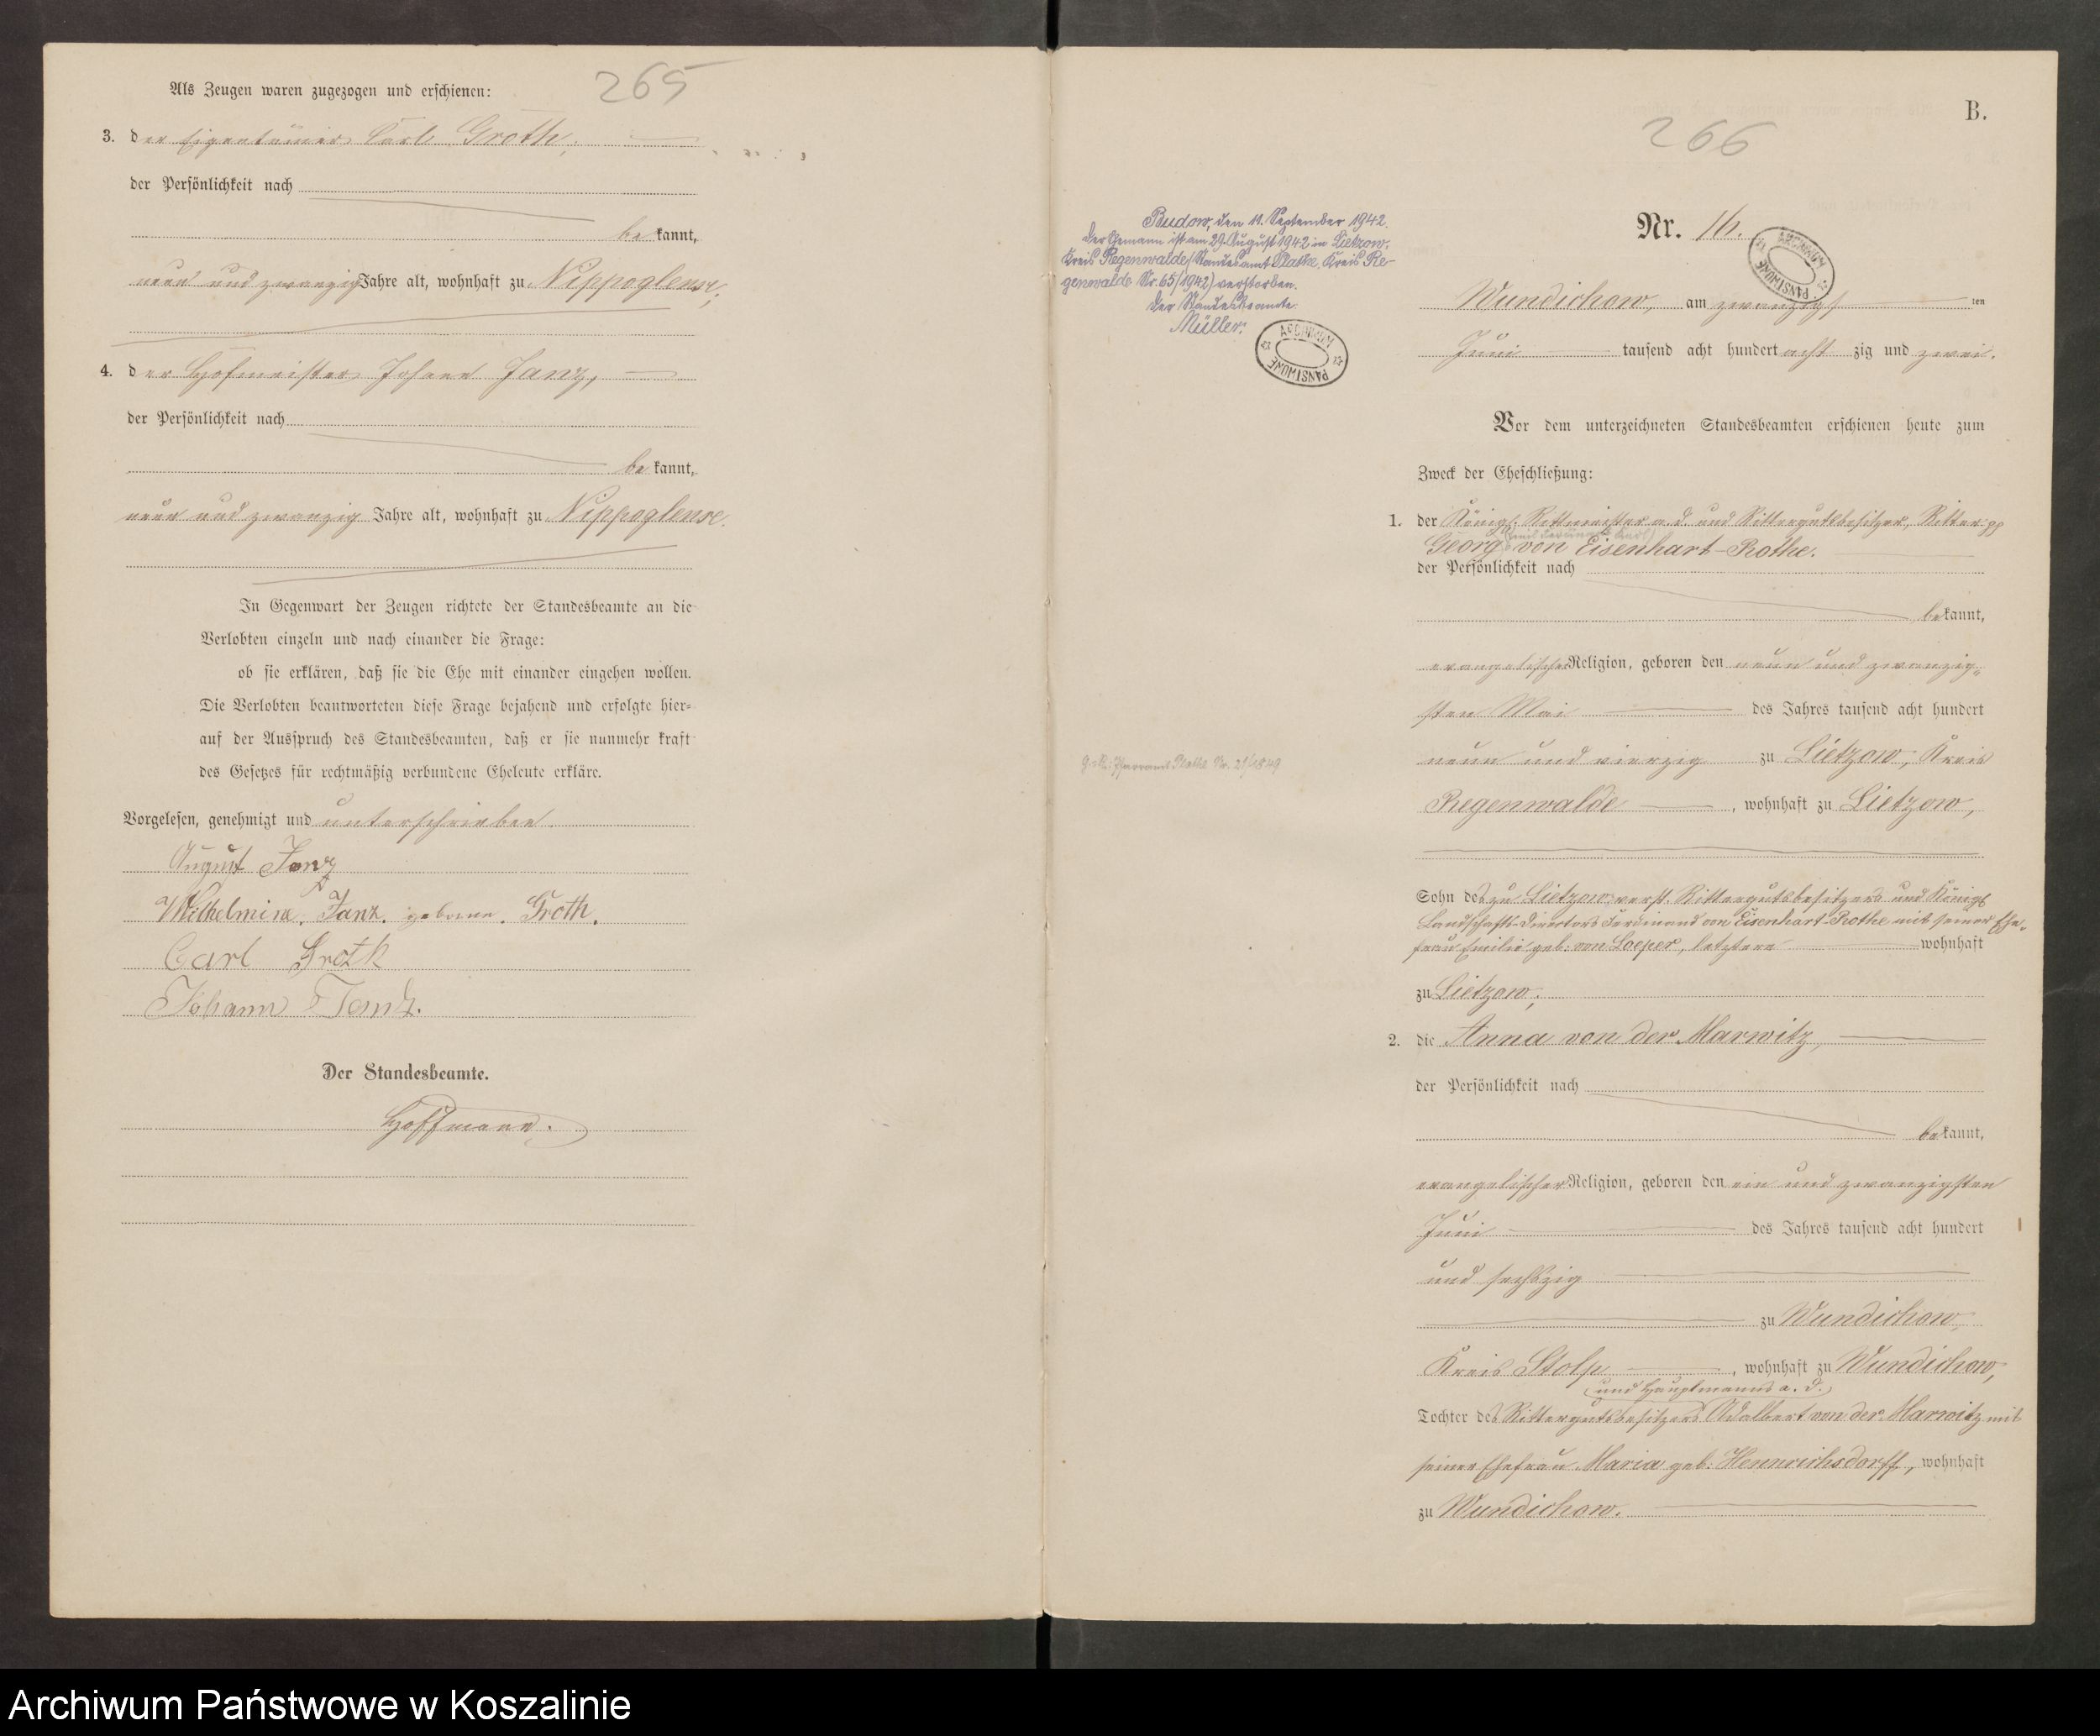 265
Als Zeugen waren zugezogen und erschienen:
3. der Eigentümer Carl Groth,
der Persönlichkeit nach
bekannt,
neun und zwanzig Jahre alt, wohnhaft zu Nippoglense,
4. der Hofmeister Johann Janz,
der Persönlichkeit nach
bekannt,
neun und zwanzig Jahre alt, wohnhaft zu Nippoglense.
In Gegenwart der Zeugen richtete der Standesbeamte an die
Verlobten einzeln und nach einander die Frage:
ob sie erklären, daß sie die Ehe mit einander eingehen wollen.
Die Verlobten beantworteten diese Frage bejahend und erfolgte hier=
auf der Ausspruch des Standesbeamten, daß er sie nunmehr kraft
des Gesetzes für rechtmäßig verbundene Eheleute erkläre.
Vorgelesen, genehmigt und unterschrieben
August Janz
Wilhelmine Janz geborne Groth.
Carl Groth
Johann Janz.
Der Standesbeamte.
Hoffmann.
B.
266
Budow, den 11. September 1942.
Der Ehemann ist am 29. August 1942 in Lietzow,
Kreis Regenwalde (Standesamt Plathe, Kreis Re-
genwalde Nr. 65/1942) verstorben.
Der Standesbeamte
Müller.
ARCHIWUM PAŃSTWOWE
Nr. 16.
ARCHIWUM PAŃSTWOWE
Wundichow, am zwanzigsten
Juni tausend acht hundert achtzig und zwei.
Vor dem unterzeichneten Standesbeamten erschienen heute zum
Zweck der Eheschließung:
1. der Königl. Rittmeister a. d. und Rittergutsbesitzer, Ritter pp
(Emil Ferdinand Karl)
Georg von Eisenhart-Rothe.
der Persönlichkeit nach
bekannt,
evangelischer Religion, geboren den neun und zwanzig-
sten Mai des Jahres tausend acht hundert
neun und vierzig zu Lietzow, Kreis
G.-R.: Pfarramt Plathe Nr. 21/1849
Regenwalde, wohnhaft zu Lietzow,
Sohn des zu Lietzow verst. Rittergutsbesitzers und Königl.
Landschafts-Directors Ferdinand von Eisenhart-Rothe mit seiner Ehe-
frau Emilie geb: von Loeper, letztere wohnhaft
zu Lietzow,
2. die Anna von der Marwitz,
der Persönlichkeit nach
bekannt,
evangelischer Religion, geboren den ein und zwanzigsten
Juni des Jahres tausend acht hundert
und sechszig
zu Wundichow,
Kreis Stolp, wohnhaft zu Wundichow,
(und Hauptmanns a. d.)
Tochter des Rittergutsbesitzers Adalbert von der Marwitz mit
seiner Ehefrau Maria geb: Hennrichsdorff, wohnhaft
zu Wundichow.
Archiwum Państwowe w Koszalinie